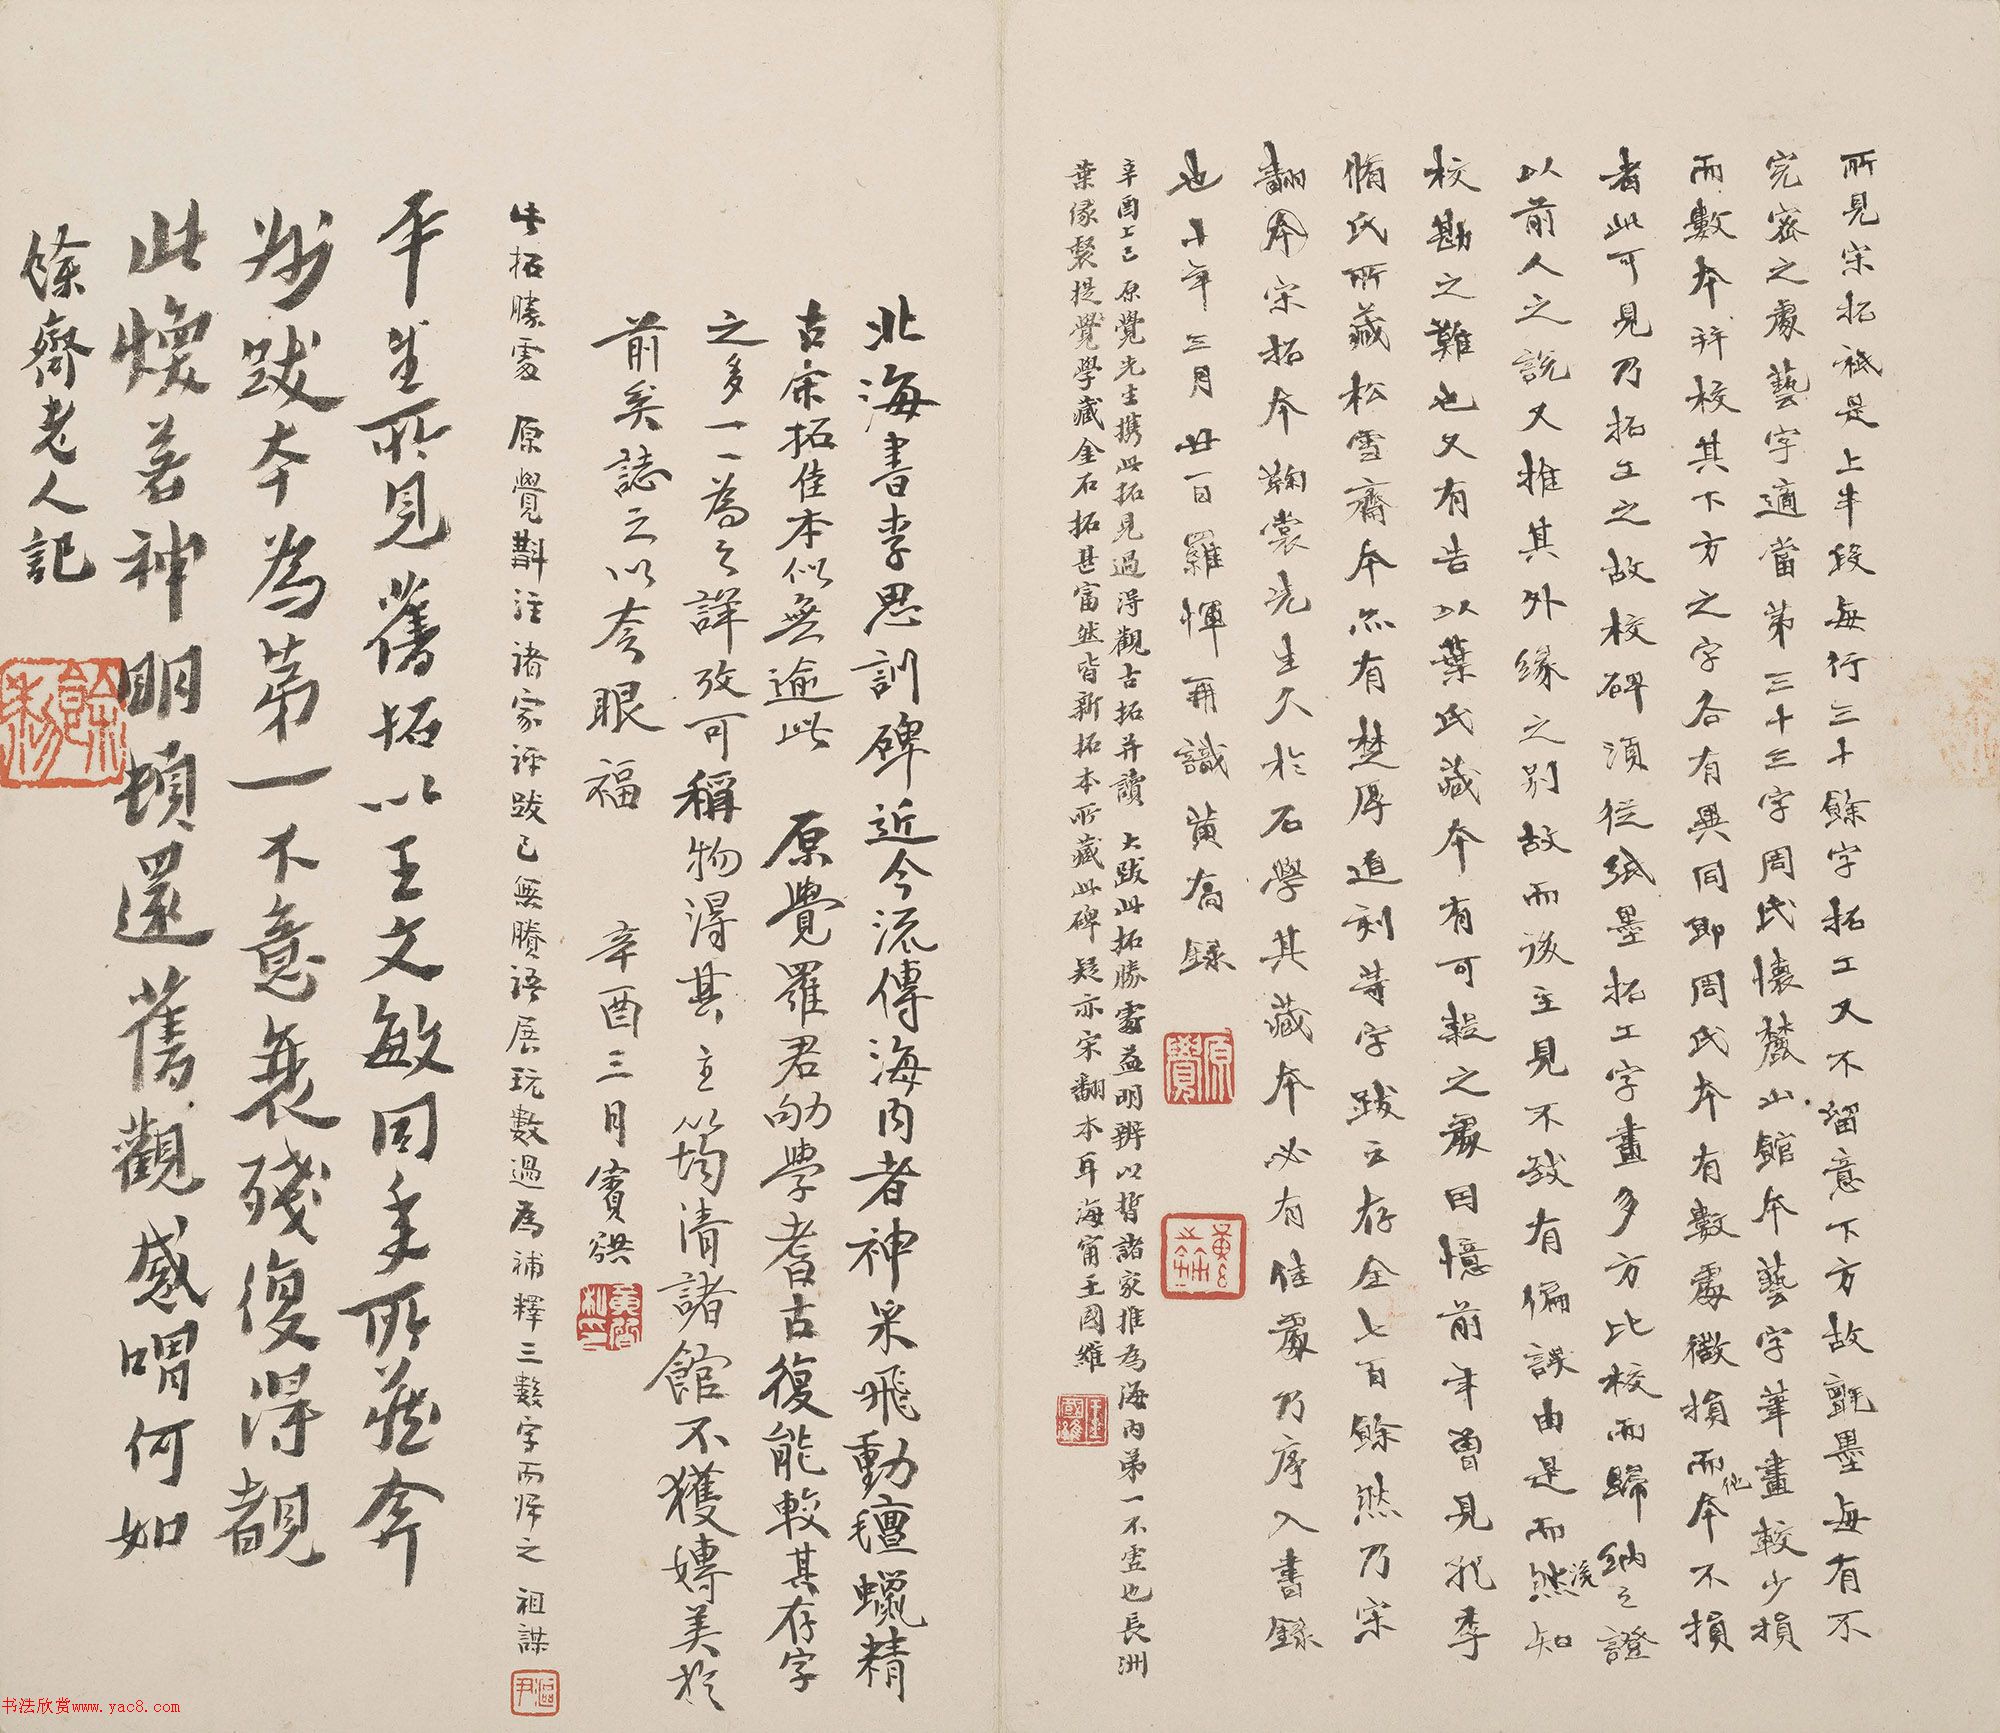 所見宋拓祇是上半段每行三十餘字拓工又不留意下方故氈墨每有不
完密之處藝字適當第三十三字周氏懷麓山館本藝字筆畫較少損
而數本并校其下方之字各有異同即周氏本有數處微損而他本不損
者此可見乃拓工之故校碑須從紙墨拓工字畫多方比校而歸納之證
以前人之說又推其外緣之別故而後主見不致有偏誤由是而然浚知
校勘之難也又有告以葉氏藏本有可疑之處因憶前年曾見孔季
脩氏所藏松雪齋本亦有楚厚追刻等字跋云存全七百餘然乃宋
翻本宋拓本鞠裳先生久於石學其藏本必有佳處乃序入書錄
也十年三月廿一日羅惲再識黃喬錄
辛酉上巳原覺先生携此拓見過得觀古拓并讀大跋此拓勝處益明辨以晳諸家推為海內第一不虛也長洲
葉緣督提學藏金石拓甚富然皆新拓本所藏此碑疑亦宋翻本耳海甯王國維
原覺
王國維
北海書李思訓碑近今流傳海內者神采飛動氊蠟精
古宋拓佳本似無逾此原覺羅君劬學耆古復能較其存字
之多一一為之詳攷可稱物得其主以筠清諸館不獲媾美於
前矣誌之以夸眼福辛酉三月賓虹
此拓勝處原覺斠注諸家評跋已無賸語展玩數過為補釋三數字而歸之祖謀
漚尹
平生所見舊拓以王文敏同年所藏本
刘跋本為第一不意衰殘復得覩
此煥若神明頓還舊觀感喟何如
餘齋老人記
书法欣赏www.yac8.com